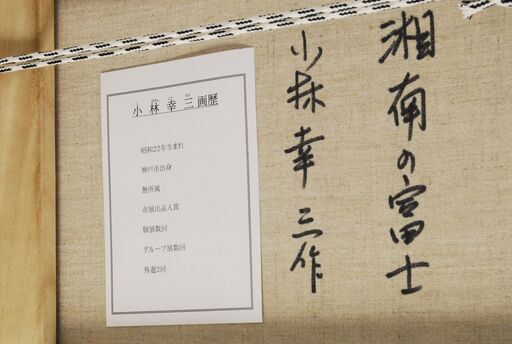 湘南の富士
小林幸三作
小林幸三画歴
昭和22年生まれ
神戸市出身
無所属
市展出品入賞
個展数回
グループ展数回
外遊2回